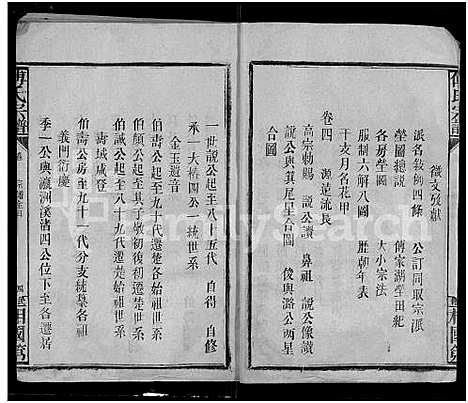 徵文攷獻
派名鈸柳四條 公訂同取宗派
塋圖總說 傅家湖塋田紀
各房塋圖 大小宗法
服制六解八圖 歷朝年表
干支月名花甲
卷四 源遠流長
高宗勅賜 說公讀 鼻祖 說公像讚
說公與箕尾星合圖 俊與潞公兩星
合圖
一世說公起至八十五代 自得 自修
承一大椿四公一統世系
金玉遺音
伯壽公起至九十代遷楚各祖世系
伯顏公起至其子敬初復初遷楚世系
伯誠公起至八十九代遷楚始祖世系
壽域咸登
伯壽公房至九十一代分支統集各祖
義門衍慶
季一公與瀛洲溪渚四公位下至各遷居
傅氏宗譜
相國堂
FamilySearch